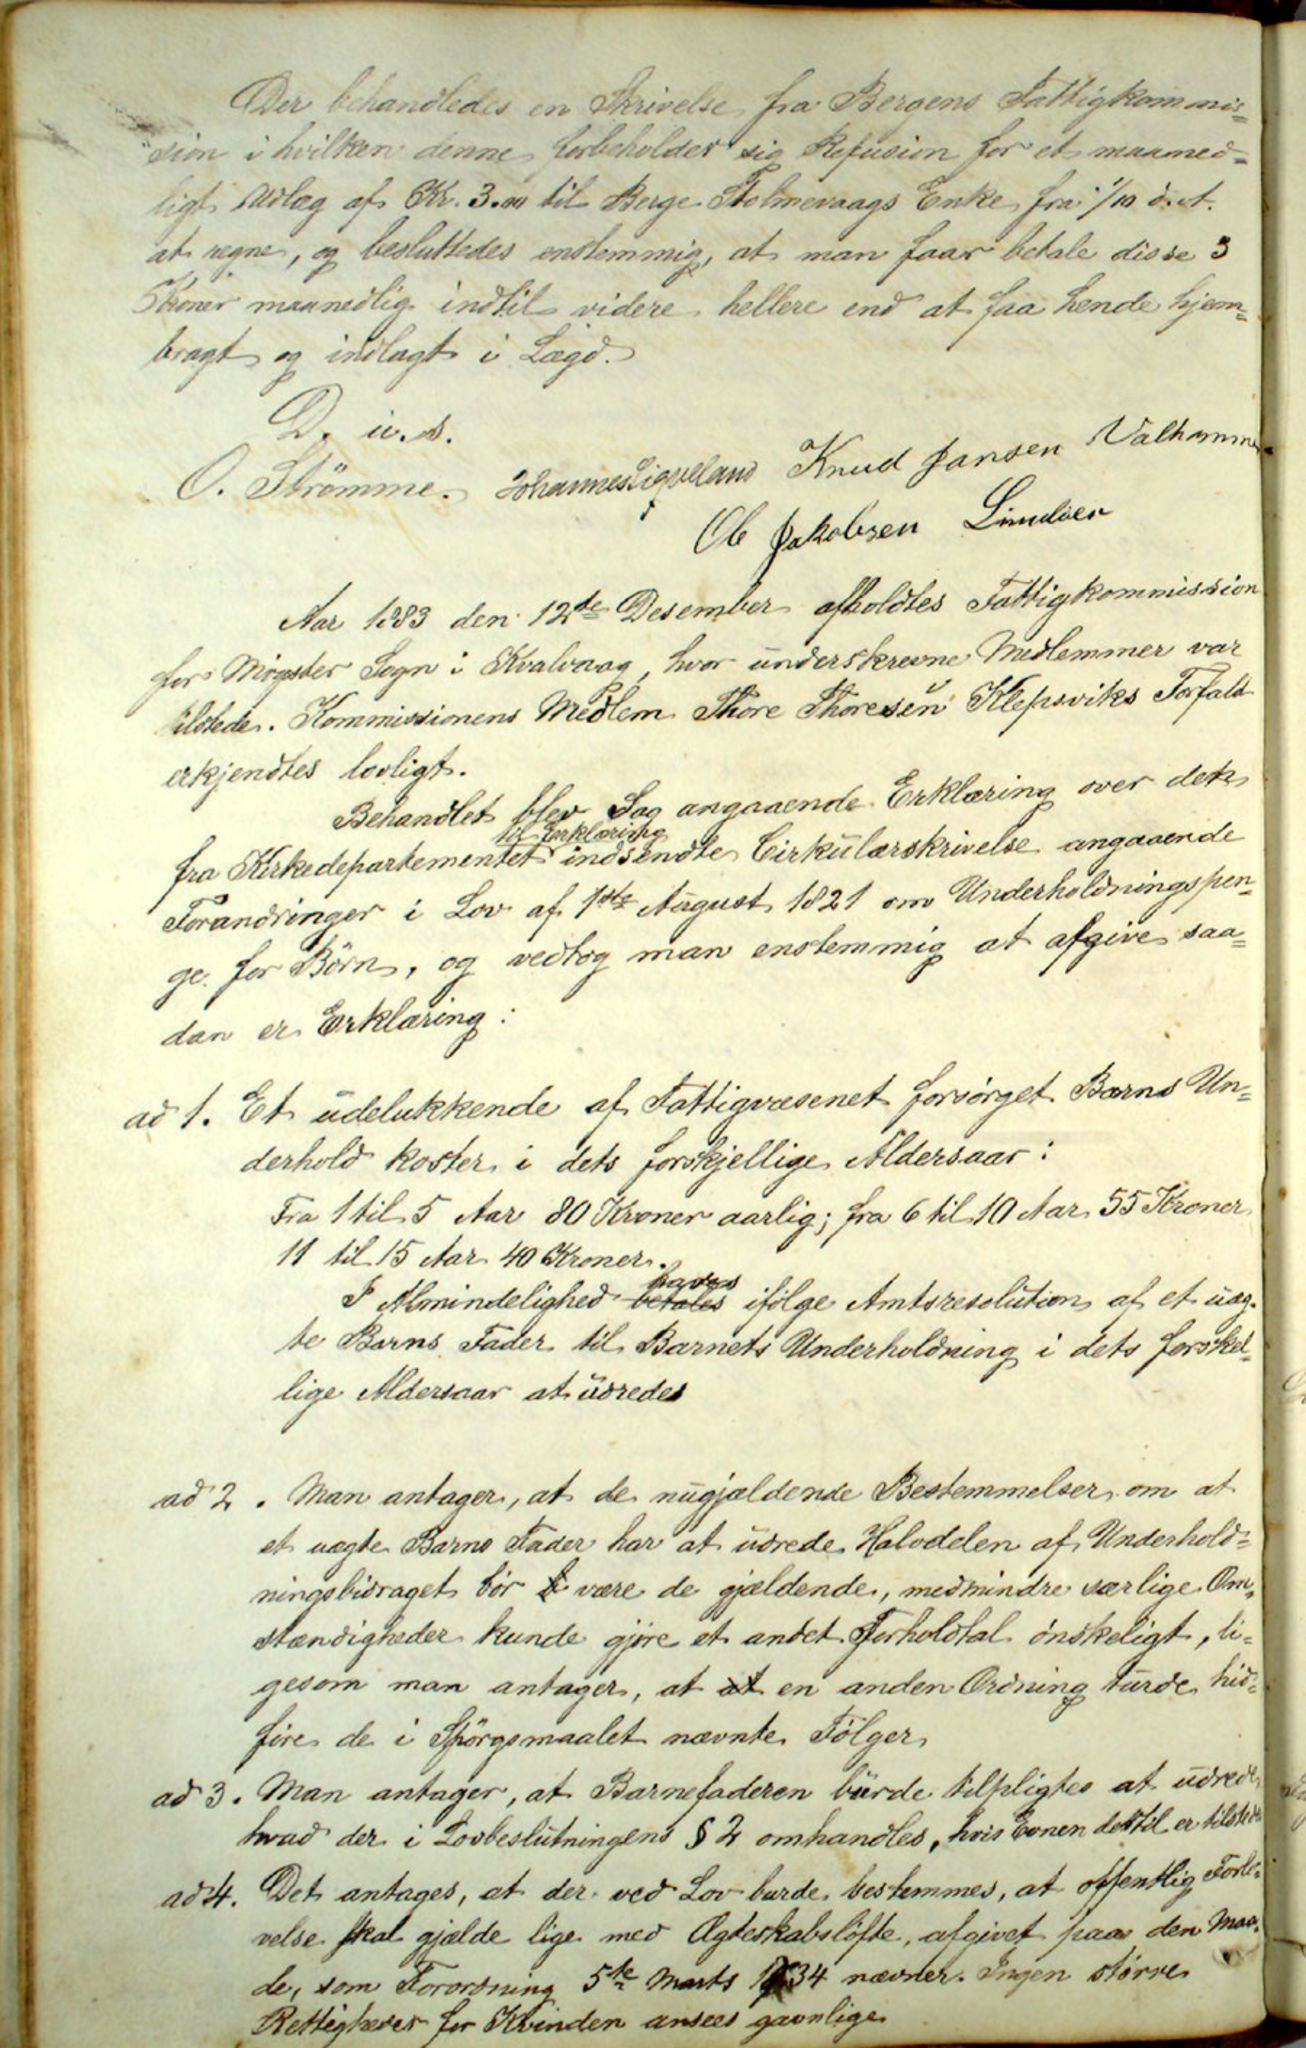 Der behandledes en Skrivelse fra Bergens Fattigkommis=
sion i hvilken denne forbeholder sig Refusion for et maaned=
ligt Udlæg af Kr. 3.00 til Berge Stolmevaags Enke fra 1/10 d. A.
at regne, og besluttedes enstemmig, at man faar betale disse 3
Kroner maanedlig indtil videre hellere end at faa hende hjem=
bragt og indlagt i Lægd.
D. u. s.
O. Strömme. Johannes Liqveland Knud Jansen Valhamme
Ole Jakobsen Lindöen
Aar 1883 den 12te Desember afholdtes Fattigkommission
for Møgster Sogn i Kvalvaag, hvor underskrevne Medlemmer var
tilstede. Kommissionens Medlem Thore Thoresen Klepsviks Forfald
erkjendtes lovligt.
Behandlet blev Sag angaaende Erklæring over den
til Erklæring
fra Kirkedepartementet indsendte Cirkulærskrivelse angaaende
Forandringer i Lov af 1ste August 1821 om Underholdningspen=
ge for Börn, og vedtog man enstemmig at afgive saa=
dan er Erklæring:
ad 1. Et udelukkende af Fattigvæsenet forsörget Barns Un=
derhold koster i dets forskjellige Aldersaar:
Fra 1 til 5 Aar 80 Kroner aarlig; fra 6 til 10 Aar 55 Kroner
11 til 15 Aar 40 Kroner.
paves
I Almindelighed betales ifölge Amtsresolution af et uæg=
te Barns Fader til Barnets Underholdning i dets forskel=
lige Aldersaar at udredes
ad 2. Man antager, at de nugjældende Bestemmelser om at
et uægte Barns Fader har at udrede Halvdelen af Underhold=
ningsbidraget bör være de gjældende, medmindre særlige Om=
stændigheder kunde gjöre et andet Forholdtal önskeligt, li=
gesom man antager, at at en anden Ordning turde hid=
före de i Spörgsmaalet nævnte Fölger
ad 3. Man antager, at Barnefaderen burde tilpligtes at udrede,
hvad der i Lovbeslutningens § 2 omhandles, hvis Evnen dertil er tilstede
ad 4. Det antages, at der ved Lov burde bestemmes, at offentlig Forlo=
velse skal gjælde lige med Ægteskabslöfte, afgivet paa den Maa=
de, som Forordning 5te Marts 1734 nævner. Ingen större
Rettigheder for Kvinden ansees gavnlige